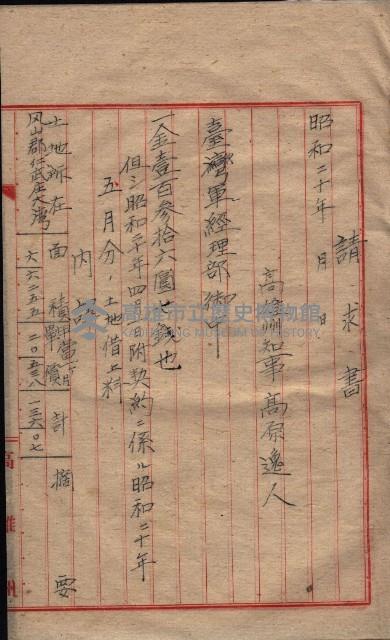 請求書
昭和二十年 月 日
高雄州知事 高原逸人
臺灣軍經理部御中
一金壹百參拾六圓七錢也
但シ昭和二十年四月 日附契約ニ係ル昭和二十年
五月分、土地借上料
內
土地所在 面積 甲當一ヶ月單價 計 摘要
凤山郡仁武庄大灣 六六二五五 二〇五三八 一三六〇七
高雄州
高雄市立歷史博物館